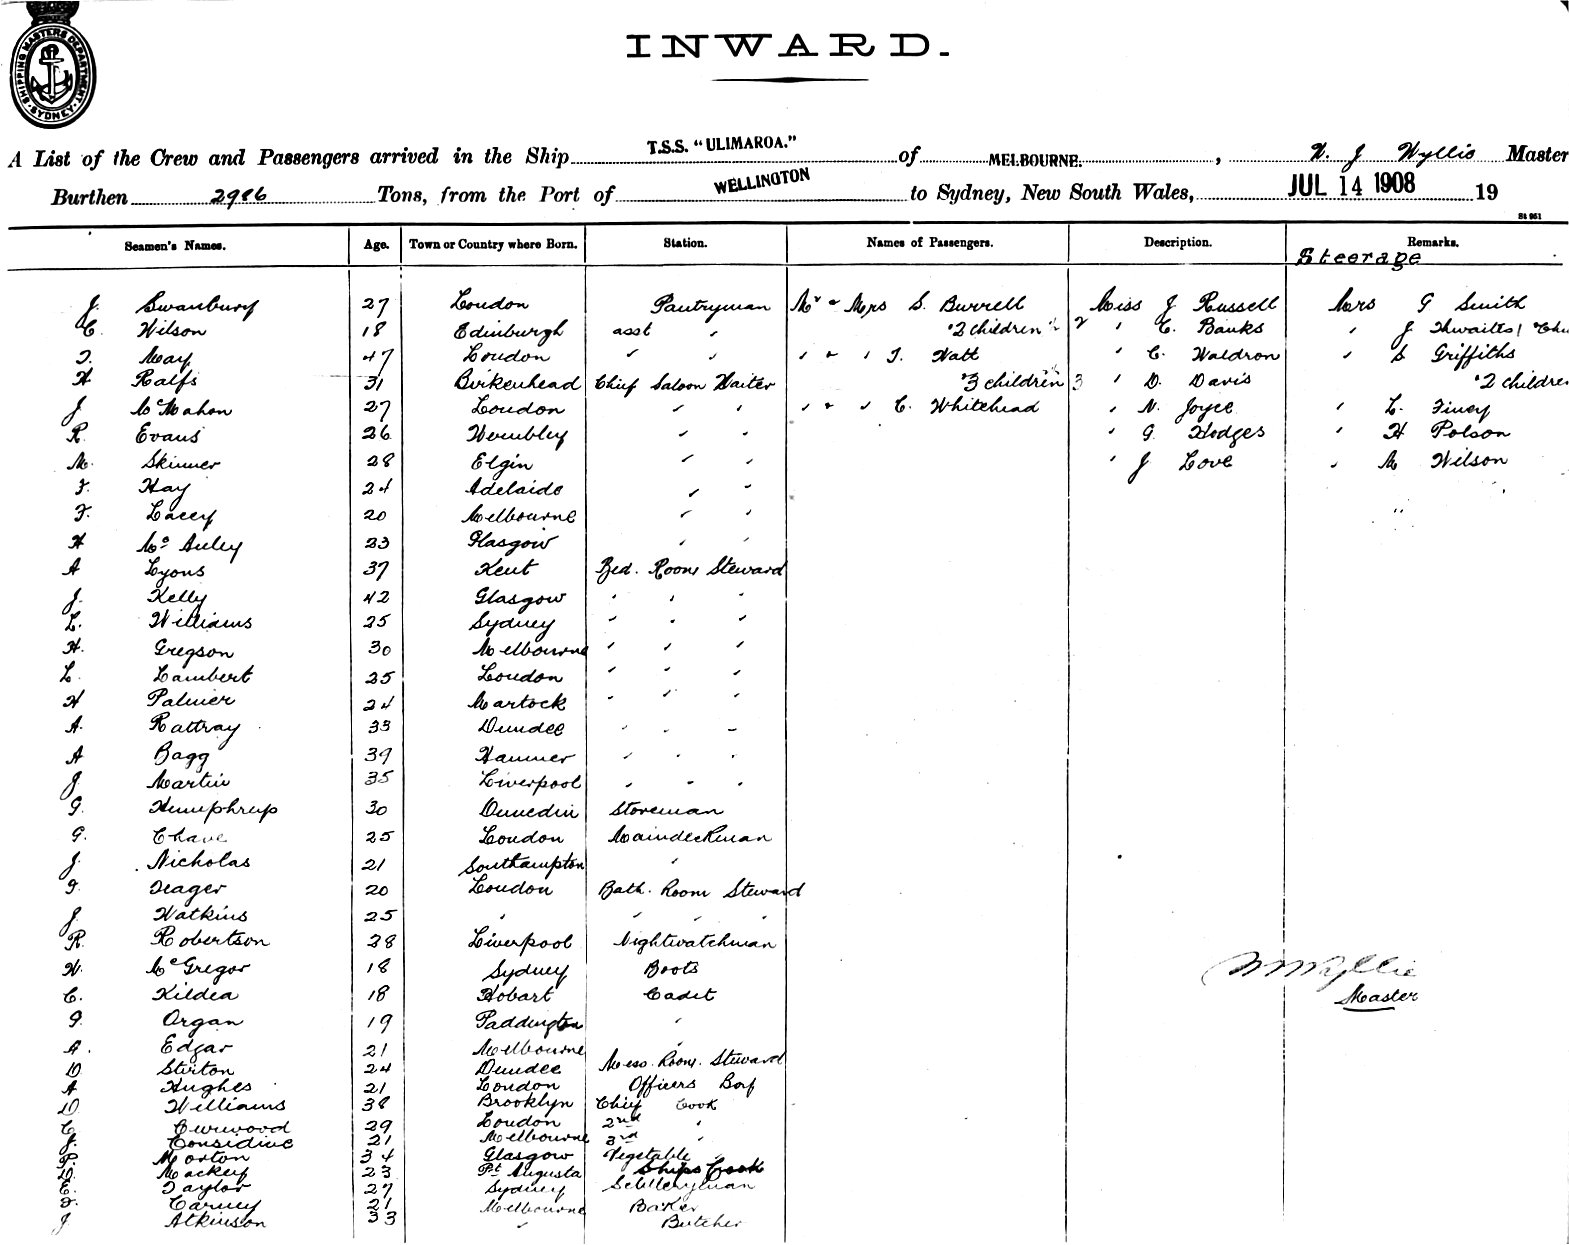 SHIPPING MASTERS DEPARTMENT · SYDNEY ·
INWARD.
A List of the Crew and Passengers arrived in the Ship T.S.S. "ULIMAROA." of MELBOURNE. , W. J Wyllie Master
Burthen 2986 Tons, from the Port of WELLINGTON to Sydney, New South Wales, JUL 14 1908 19
St 961
Seamen's Names. Age. Town or Country where Born. Station. Names of Passengers. Description. Remarks.
Steerage
J. Swanbury 27 London Pantryman Mr & Mrs S. Burrell Miss J Russell Mrs G Smith
C. Wilson 18 Edinburgh asst " "2 children" 2 " C. Banks " J Thwaites
T. May 47 London " " " & " T. Watt " C. Waldron " S Griffiths
H Ralfs 31 Birkenhead Chief Saloon Waiter "3 children 3 " D. Davis "2 childre
J. McMahon 27 London " " " & " C. Whitehead " N. Joyce " L. Finey
R. Evans 26 Wembley " " " G. Hodges " H Polson
M. Skinner 28 Elgin " " " J Love " M Wilson
F. Hay 24 Adelaide " "
F. Lacey 20 Melbourne " "
H McAuley 23 Glasgow " "
A Lyons 37 Kent Bed. Room Steward
J. Kelly 42 Glasgow " " "
L. Williams 25 Sydney " " "
H. Gregson 30 Melbourne " " "
L. Lambert 25 London " " "
H Palmer 24 Martock " " "
A. Rattray 33 Dundee " " "
A Bagg 39 Hanmer " " "
J. Martin 35 Liverpool " " "
G. Humphrys 30 Dunedin Storeman
G. Chave 25 London Maindeckman
J. Nicholas 21 Southampton "
F. Teager 20 London Bath. Room Steward
J. Watkins 25 " " " "
R. Robertson 28 Liverpool Nightwatchman
W. McGregor 18 Sydney Boots
C. Kildea 18 Hobart Cadet
G. Organ 19 Paddington "
A. Edgar 21 Melbourne "
D Stirton 24 Dundee Mess. Room. Steward
A Hughes 21 London Officers Boy
D. Williams 38 Brooklyn Chief Cook
C Curwood 29 London 2nd "
J. Considine 21 Melbourne 3rd "
P. Morton 34 Glasgow Vegetable "
D. Mackey 23 Pt Augusta Ships Cook
E. Taylor 27 Sydney Sculleryman
F. Carney 21 Melbourne Baker
J Atkinson 33 " Butcher
W J Wyllie
Master